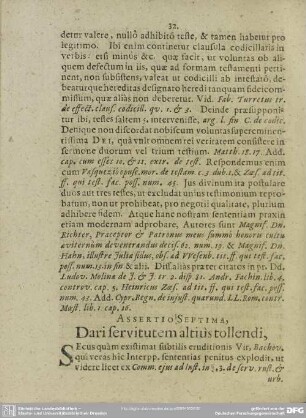 32.
detur valere, nullô adhibitô teste, & tamen habetur pro
legitimo. Ibi enim continetur clausula codicillaris in
verbis: etsi minus &c. quæ facit, ut voluntas ob ali-
quem defectum in iis, quæ ad formam testamenti perti-
nent, non subsistens, valeat ut codicilli ab intestatô, de-
beaturque hereditas designato heredi tanquam fideicom-
missum, quæ aliàs non deberetur. Vid. Fab. Turretus tr.
de effect. clausf. codicill. qv. 1. & 2. Deinde præsupponi-
tur ibi, testes saltem 5. intervenisse, arg. l. fin C. de codic.
Denique non discordat nobiscum voluntas supereminen-
tissima DEI, quâ vult omnem rei veritatem consistere in
sermone duorum vel trium testium. Matth. 18. 17. Add.
cap. cum esses 10. & 11. extr. de test. Respondemus enim
cum Vasquezio opusc. mor. de testam. c. 3 dub. 1. & Zas. ad tit.
ff. qui test. fac. poss. num. 43. Jus divinum ita postulare
duos aut tres testes, ut excludat unius testimonium repro-
batum, non ut prohibeat, pro negotii qualitate, plurium
adhibere fidem. Atque hanc nostram sententiam praxin
etiam modernam adprobare, Autores sunt Magnif. Dn.
Richter, Præceptor & Patronus meus summô honoris cultu
æviternùm devenerandus decis. 62. num. 13. & Magnif. Dn.
Hahn, illustre Juliæ sidus, obs. ad Wesenb. tit. ff. qui test. fac.
poss. num. 15. in fin & aliis. Dissfallis præter citatos in pr. Dd.
Ludov. Molina de J. & J. tr. 2. disp 81. Andr. Fachin. lib. 4.
controv. cap. 5. Heinricus Zas. ad tit. ff. qui test. fac. poss.
num. 43. Add. Cypr. Regn. de injust. quarund. LL. Rom. contr.
Must. lib. 1. cap. 18.
ASSERTIO SEPTIMA,
Dari servitutem altius tollendi,
Secus quàm existimat subtilis eruditionis Vir, Bachov.
qui veras hîc Interpp. sententias penitus explodit, ut
videre licet ex Comm. ejus ad Inst. in §. 3. de serv. rust. &
urb.